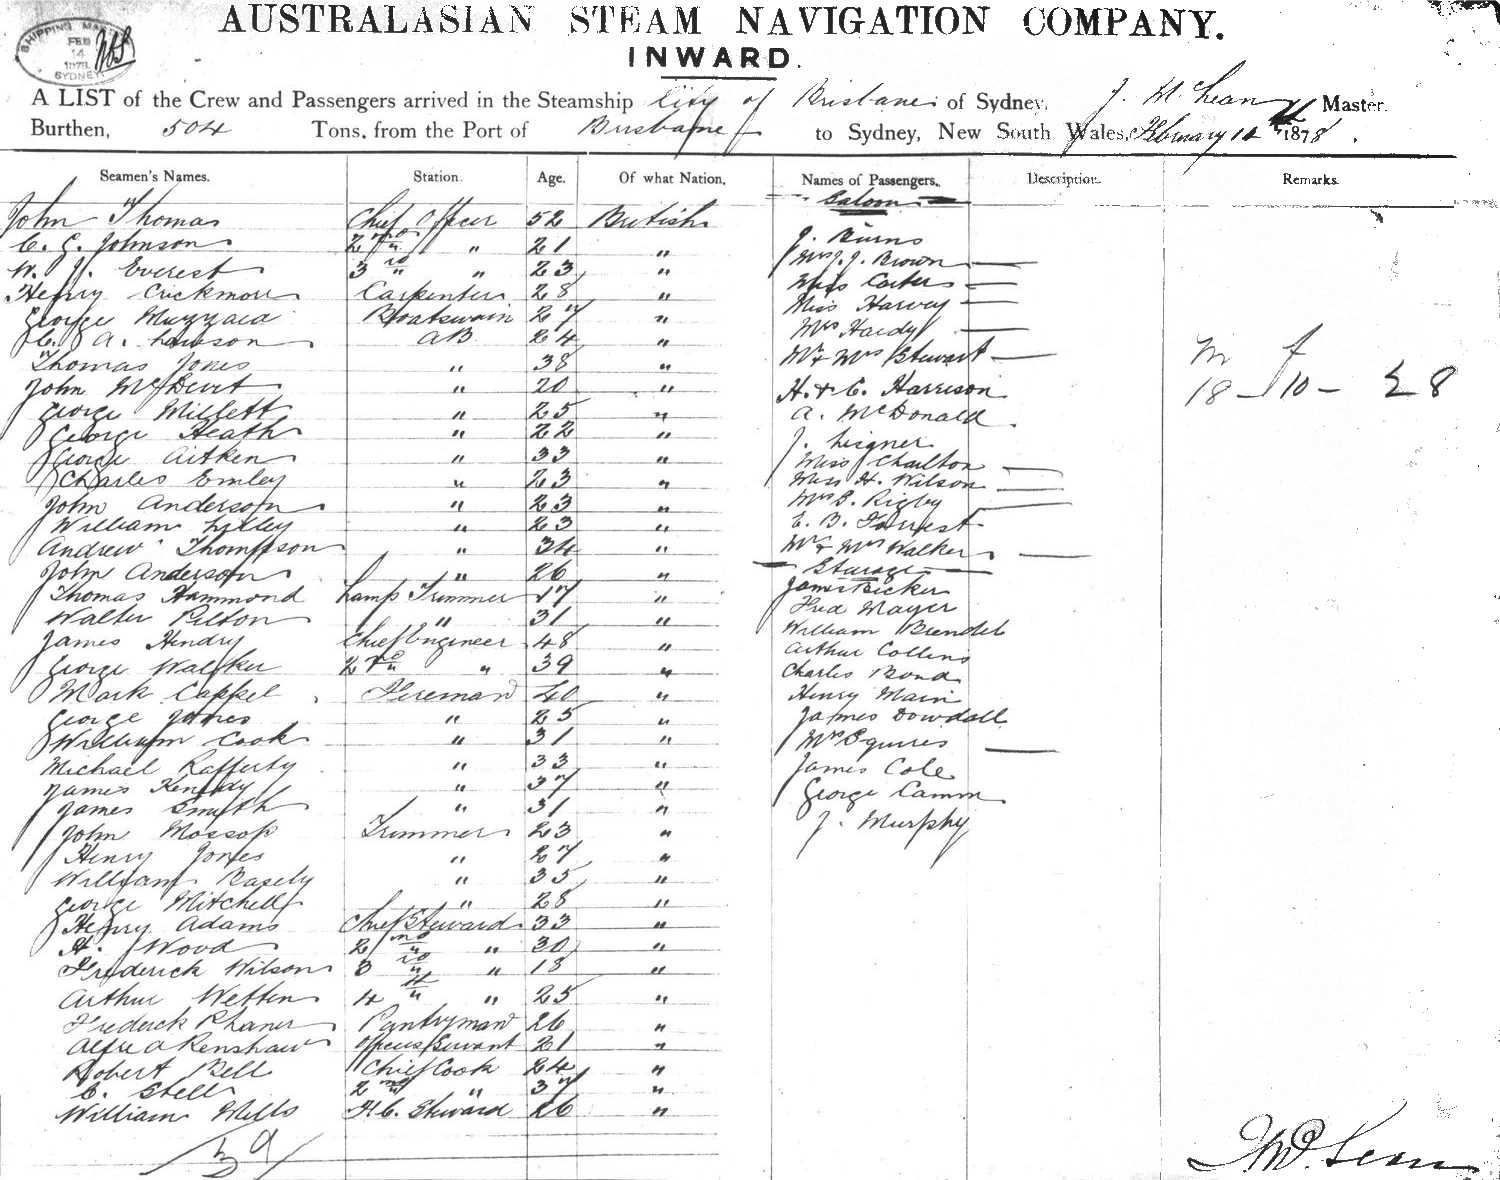 AUSTRALASIAN STEAM NAVIGATION COMPANY.
INWARD.
SHIPPING FEB 14 1878 SYDNEY
A LIST of the Crew and Passengers arrived in the Steamship City of Brisbane of Sydney, J. McLean Master.
Burthen, 504 Tons, from the Port of Brisbane to Sydney, New South Wales, February 14 1878.
Seamen's Names. Station. Age. Of what Nation. Names of Passengers. Description. Remarks.
Saloon
John Thomas Chief Officer 52 British
C. G. Johnson 2nd " 21 " J. Burns
W. J. Everest 3rd " 23 " Mrs J. J. Brown
Henry Crickmore Carpenter 28 " Miss Carter
George Muzzard Boatswain 27 " Miss Harvey
C. A. Lawson AB 24 " Mrs Hardy
Thomas Jones " 38 " Mr & Mrs Stewart
John McDevit " 20 " H. & C. Harrison
George Millett " 25 " A. McDonald
George Heath " 22 " J.
George Aitken " 33 " Miss Charlton
Charles Emley " 23 " Miss H. Wilson
John Anderson " 23 " Mrs B. Rigby
William Lilley " 23 " E. B. Forrest
Andrew Thompson " 34 " Mr & Mrs Walker
John Anderson " 26 " Sturage
Thomas Hammond Lamp Trimmer 17 " James Bicker
Walter Pilton " 31 " Fred Mayer
James Hendry Chief Engineer 48 " William Brendel
George Walker 2nd " 39 " Arthur Collins
Mark Cappel Fireman 40 " Charles Bond
George Jones " 25 " Henry Main
William Cook " 31 " James Dowdall
Michael Rafferty " 33 " Mrs Squires
James Kennedy " 37 " James Cole
James Smyth " 31 " George Camm
John Mossop Trimmer 23 " J. Murphy
Henry Jones " 27 "
William Basely " 35 "
George Mitchell " 28 "
Henry Adams Chief Steward 33 "
H. Wood 2nd " 30 "
Frederick Wilson 3rd " 18 "
Arthur Wetten 4th " 25 "
Frederick Pantryman 26 "
Alfred Renshaw Officers Servant 21 "
Robert Bell Chief Cook 24 "
C. Stell 2nd " 37 "
William Mills F.C. Steward 26 "
39
M F
18 - 10 - 28
J McLean